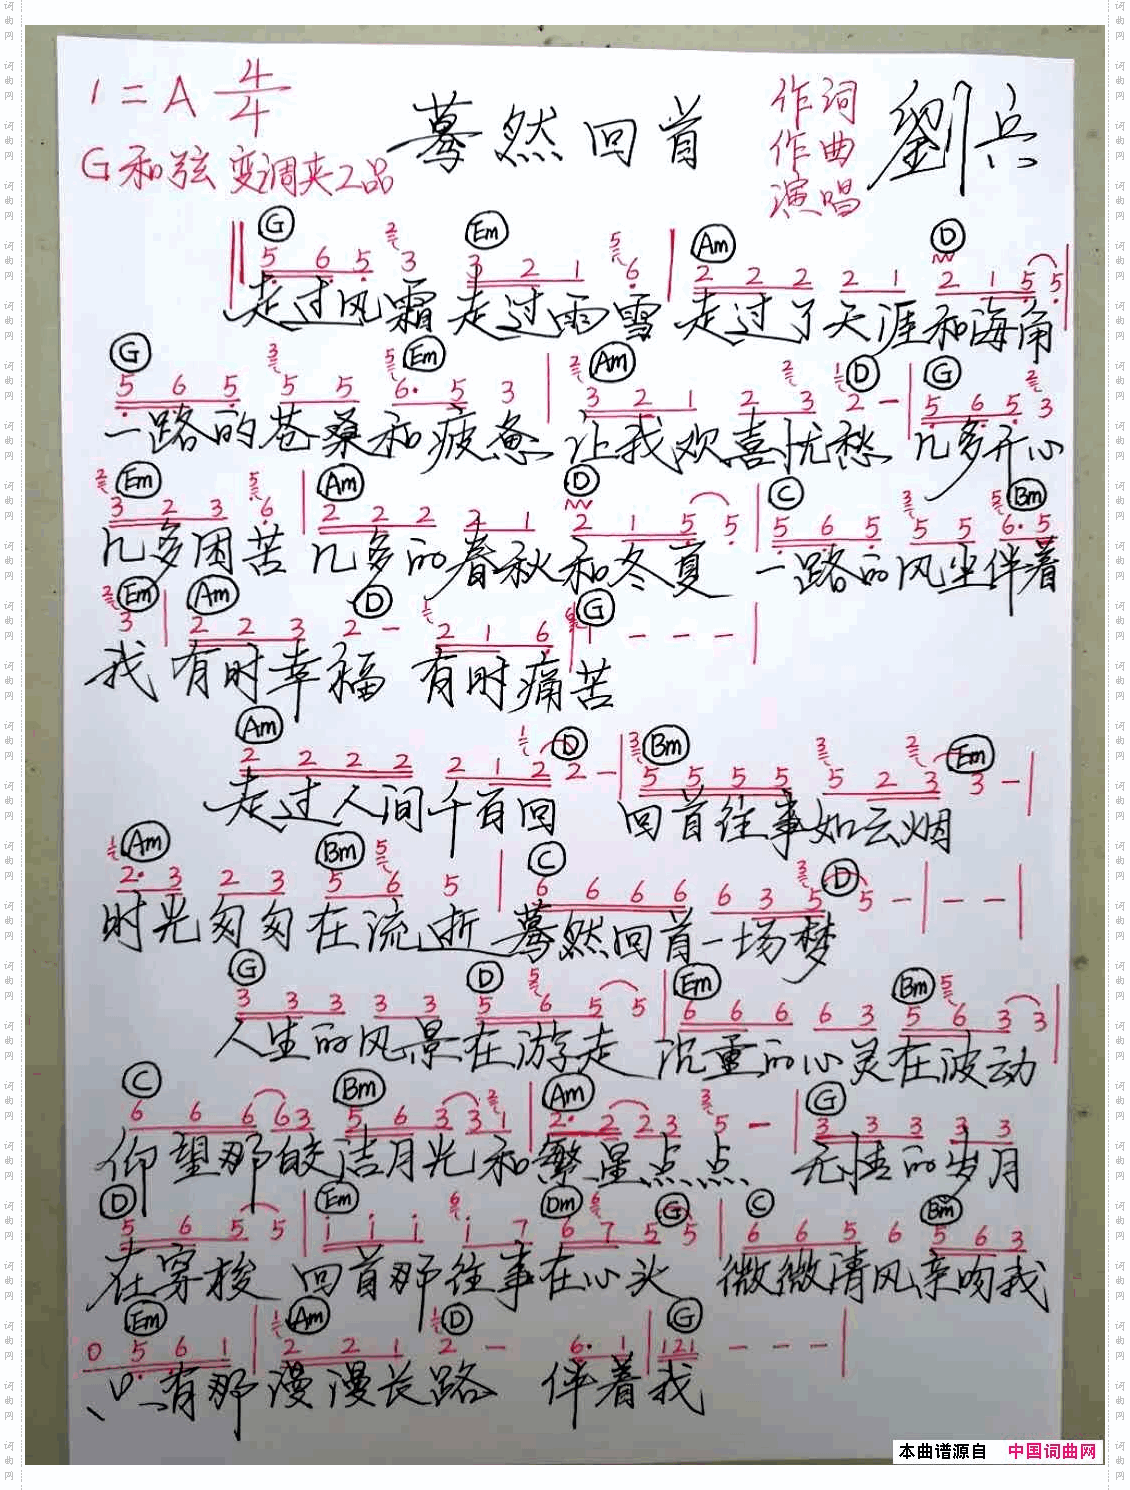 1=A 4/4
蓦然回首
作词
作曲
演唱
劉兵
G和弦 变调夹2品
G Em Am D
5 6 5 3 3 2 1 6 2 2 2 2 1 2 1 5 5
走过风霜 走过雨雪 走过了天涯和海角
G Em Am D G
5 6 5 5 5 6· 5 3 3 2 1 2 3 2 - 5 6 5 3
一路的苍桑和疲惫 让我欢喜忧愁 几多开心
Em Am D C Bm
3 2 3 6 2 2 2 2 1 2 1 5 5 5 6 5 5 5 6· 5
几多困苦 几多的春秋和冬夏 一路的风尘伴着
Em Am D G
3 2 2 3 2 - 2 1 6 1 - - -
我 有时幸福 有时痛苦
Am D Bm Em
2 2 2 2 2 1 2 2 - 5 5 5 5 5 2 3 3 -
走过人间千百回 回首往事如云烟
Am Bm C D
2· 3 2 3 5 6 5 6 6 6 6 6 3 5 5 - - -
时光匆匆在流逝 蓦然回首一场梦
G D Em Bm
3 3 3 3 3 5 6 5 5 6 6 6 6 3 5 6 3 3
人生的风景在游走 沉重的心灵在波动
C Bm Am G
6 6 6 6 3 5 6 3 3 1 2· 2 2 3 5 - 3 3 3 3 3
仰望那皎洁月光和繁星点点 无情的岁月
D Em Dm G C Bm
5 6 5 5 i i i i 7 6 7 5 5 6 6 5 6 5 6 3
在穿梭 回首那往事在心头 微微清风亲吻我
Em Am D G
0 5 6 1 2 2 1 2 - 6· 1 121 - - -
只有那漫漫长路 伴着我
本曲谱源自 中国词曲网